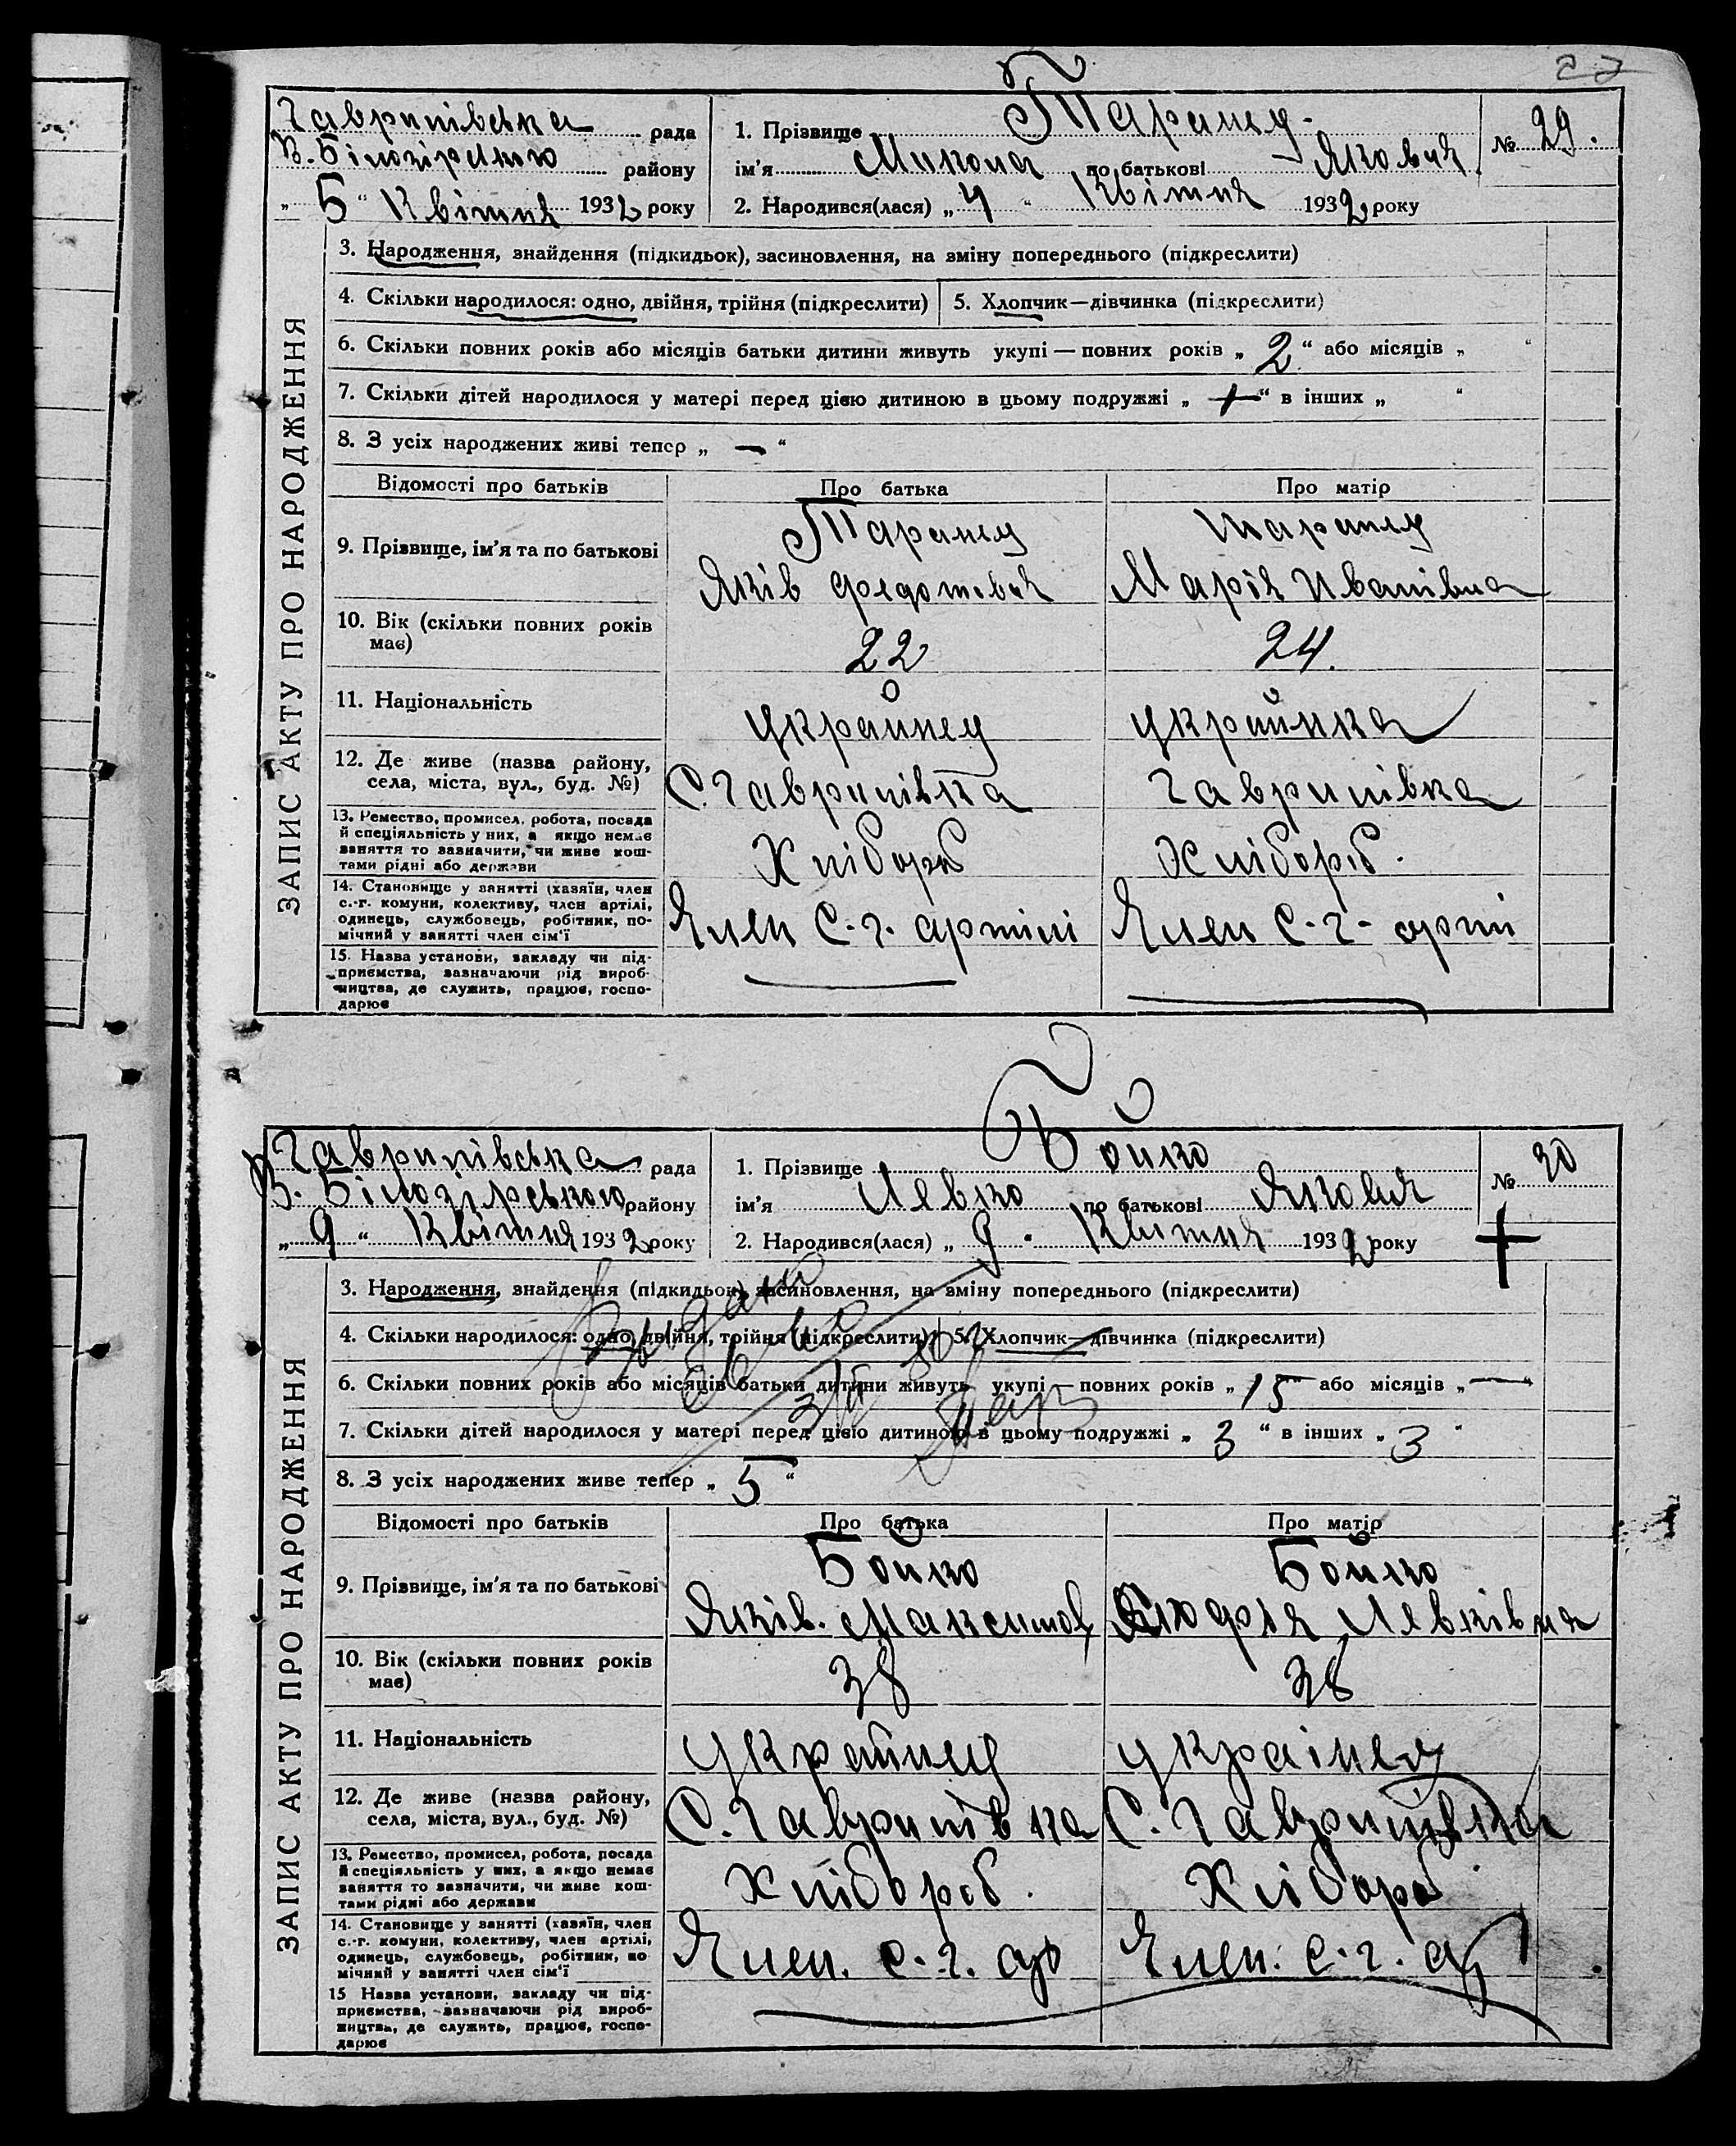 27
Гаврилівська рада
В. Білозірського району
„ 5 “ Квітня 1932 року
1. Прізвище Таранец
ім'я Микола по батьковіЯкович
2. Народився(лася) „ 4 “ Квітня 1932 року
№ 29.
ЗАПИС АКТУ ПРО НАРОДЖЕННЯ
3. Народження, знайдення (підкидьок), засиновлення, на зміну попереднього (підкреслити)
4. Скільки народилося: одно, двійня, трійня (підкреслити) 5. Хлопчик—дівчинка (підкреслити)
6. Скільки повних років або місяців батьки дитини живуть укупі — повних років „ 2 “ або місяців „ “
7. Скільки дітей народилося у матері перед цією дитиною в цьому подружжі „ “ в інших „ “
8. З усіх народжених живі тепер „ — “
Відомості про батьків Про батька Про матір
9. Прізвище, ім'я та по батькові
Таранец Таранец
Яків Федотович Марія Иванівна
10. Вік (скільки повних років має) 22 24.
11. Національність украйнец украйнка
12. Де живе (назва району, села, міста, вул., буд. №) С. Гаврилівка Гаврилівка
13. Ремество, промисел, робота, посада
й спеціяльність у них, а якщо немає
заняття то зазначити, чи живе кош-
тами рідні або держави
Хлібороб Хлібороб.
14. Становище у занятті (хазяїн, член
с.-г. комуни, колективу, член артілі,
одинець, службовець, робітник, по-
мічний у занятті член сім'ї
Член С.г. артілі Член С-г- арті
15. Назва установи, закладу чи під-
приємства, зазначаючи рід вироб-
ництва, де служить, працює, госпо-
дарює
Гаврилівська рада
В. Білозірського району
„ 9 “ Квітня 1932 року
1. Прізвище Бойко
ім'я Левко по батькові Якович
2. Народився(лася) „ 9 “ Квитня 1932 року
№ 30
ЗАПИС АКТУ ПРО НАРОДЖЕННЯ
3. Народження, знайдення (підкидьок), засиновлення, на зміну попереднього (підкреслити)
4. Скільки народилося: одно, двійня, трійня (підкреслити) 5. Хлопчик—дівчинка (підкреслити)
6. Скільки повних років або місяців батьки дитини живуть укупі — повних років „ 15 “ або місяців „ — “
7. Скільки дітей народилося у матері перед цією дитиною в цьому подружжі „ 3 “ в інших „ 3 “
8. З усіх народжених живе тепер „ 5 “
Відомості про батьків Про батька Про матір
9. Прізвище, ім'я та по батькові
Бойко Бойко
Яків. Максимов Левківна
10. Вік (скільки повних років має) 38 38
11. Національність украйнец украінец
12. Де живе (назва району, села, міста, вул., буд. №) С. Гаврилівка С. Гаврилівка
13. Ремество, промисел, робота, посада
й спеціяльність у них, а якщо немає
заняття то зазначити, чи живе кош-
тами рідні або держави
Хлібороб. Хлібороб
14. Становище у занятті (хазяїн, член
с.-г. комуни, колективу, член артілі,
одинець, службовець, робітник, по
мічний у занятті член сім'ї
Член. с.г. ар Член. с.г. ар
15 Назва установи, закладу чи під-
приємства, зазначаючи рід вироб-
ництва, де служить, працює, госпо-
дарює